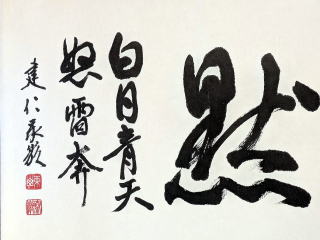 黙
白日青天
怒雷奔
建仁